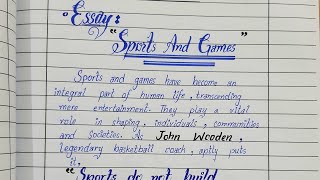 Essay:
"Sports And Games"
Sports and games have become an
integral part of human life, transcending
mere entertainment. They play a vital
role in shaping, individuals, communities
and societies. As John Wooden,
legendary basketball coach, aptly puts
it,
"Sports do not build